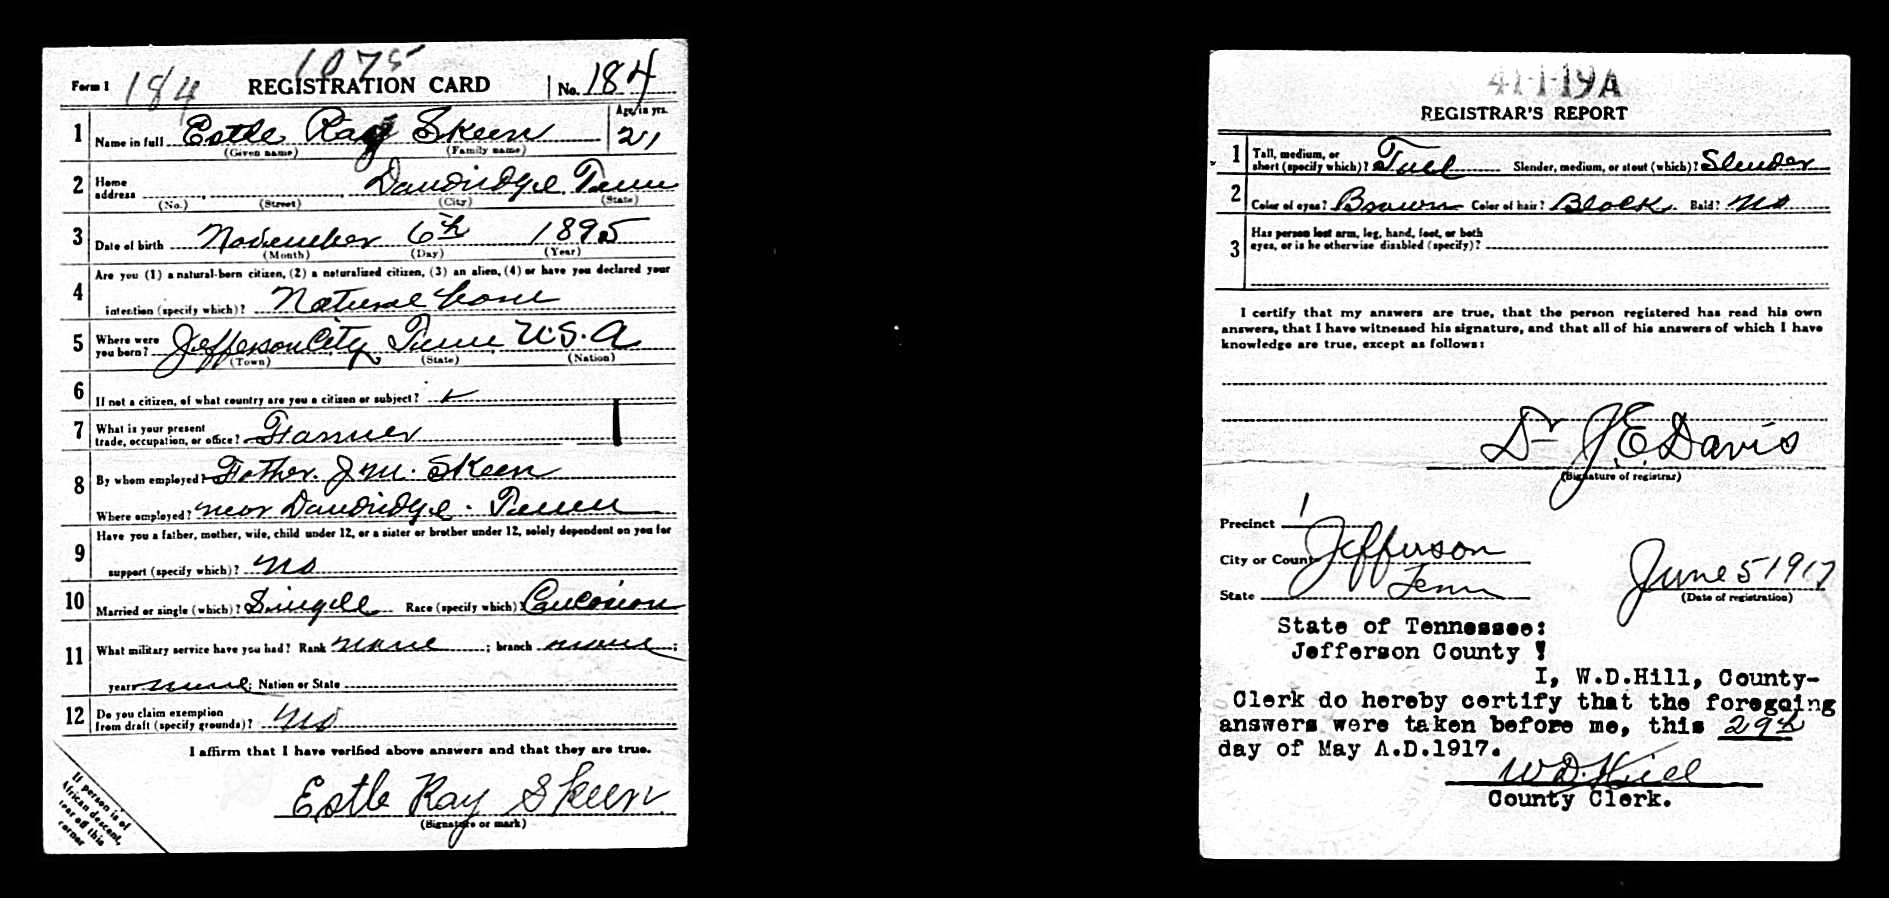 1075
Form 1 184 REGISTRATION CARD No. 184
1 Name in full Estle Ray Skeen Age, in yrs. 21
(Given name) (Family name)
2 Home address Dandridge Tenn
(No.) (Street) (City) (State)
3 Date of birth November 6th 1895
(Month) (Day) (Year)
4 Are you (1) a natural-born citizen, (2) a naturalized citizen, (3) an alien, (4) or have you declared your
intention (specify which)? Natural born
5 Where were you born? Jefferson City Tenn U.S.A
(Town) (State) (Nation)
6 If not a citizen, of what country are you a citizen or subject?
7 What is your present
trade, occupation, or office? Farmer
8 By whom employed? Father. J.M. Skeen
Where employed? near Dandridge. Tenn
9 Have you a father, mother, wife, child under 12, or a sister or brother under 12, solely dependent on you for
support (specify which)? no
10 Married or single (which)? Singell Race (specify which) Caucosion
11 What military service have you had? Rank none ; branch none ;
years none ; Nation or State
12 Do you claim exemption
from draft (specify grounds)? No
I affirm that I have verified above answers and that they are true.
Estle Ray Skeen
(Signature or mark)
If person is of
African descent,
tear off this
corner
41-1-19A
REGISTRAR'S REPORT
1 Tall, medium, or
short (specify which)? Tall Slender, medium, or stout (which)? Slender
2 Color of eyes? Brown Color of hair? Black Bald? No
3 Has person lost arm, leg, hand, foot, or both
eyes, or is he otherwise disabled (specify)?
I certify that my answers are true, that the person registered has read his own
answers, that I have witnessed his signature, and that all of his answers of which I have
knowledge are true, except as follows:
Dr J.E. Davis
(Signature of registrar)
Precinct 1
City or County Jefferson
State Tenn
June 5 1917
(Date of registration)
State of Tennessee:
Jefferson County !
I, W.D.Hill, County-
Clerk do hereby certify that the foregoing
answers were taken before me, this 29th
day of May A.D.1917.
W.D. Hill
County Clerk.